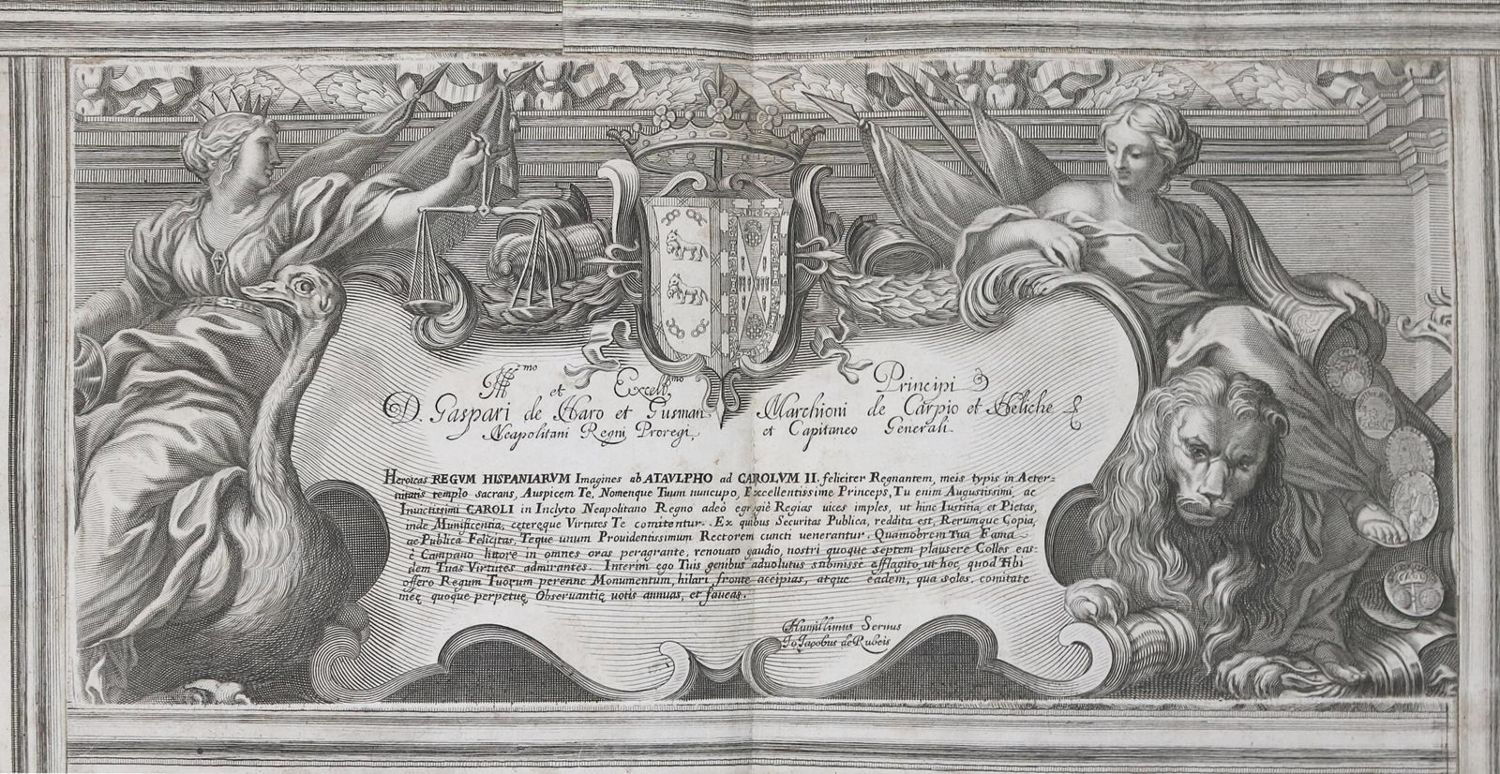 Ill.mo et Excell.mo Principi D.
D. Gaspari de Haro et Gusman. Marchioni de Carpio et Heliche &
Neapolitani Regni Proregi, et Capitaneo Generali.
Heroicas REGVM HISPANIARVM Imagines ab ATAVLPHO ad CAROLVM II. feliciter Regnantem, meis typis in Aeter-
nitatis templo sacrans, Auspicem Te, Nomenque Tuum nuncupo, Excellentissime Princeps, Tu enim Augustissimi, ac
Inuictissimi CAROLI in Inclyto Neapolitano Regno adeò egregiè Regias uices imples, ut hinc Iustitia, et Pietas,
inde Munificentia, ceteręque Virtutes Te comitentur. Ex quibus Securitas Publica, reddita est, Rerumque Copia,
ac Publica Felicitas, Teque unum Prouidentissimum Rectorem cuncti uenerantur. Quamobrem Tua Fama
è Campano littore in omnes oras peragrante, renouato gaudio, nostri quoque septem plausere Colles eas-
dem Tuas Virtutes admirantes. Interim ego Tuis genibus aduolutus submisse efflagito, ut hoc, quod Tibi
offero Regum Tuorum perenne Monumentum, hilari fronte accipias, atque eadem, qua soles, comitate
meę quoque perpetuę Obseruantię uotis annuas, et faueas.
Humillimus Seruus
Io Jacobus de Rubeis